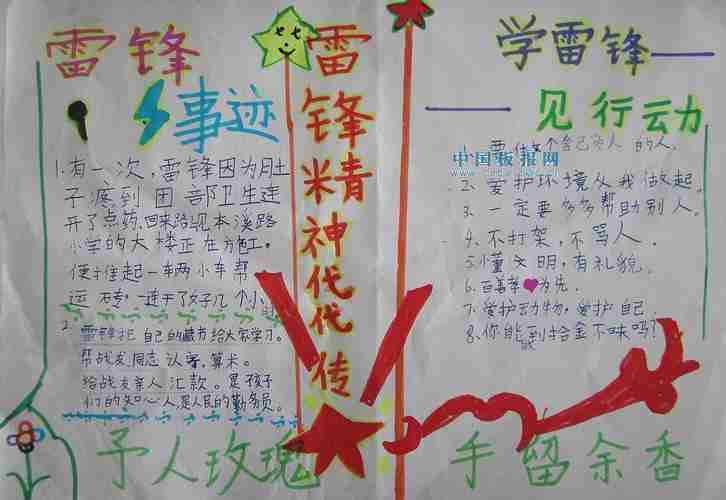 雷锋
事迹
1.有一次,雷锋因为肚
子疼到团部卫生连
开了点药,回来路见本溪路
小学的大楼正在施工。
便推起一车两小车帮
运砖,一连干了好几个小时
2.
雷锋把自己的藏书给大家学习。
帮战友,同志认字,算术。
给战友亲人汇款。是孩子
们的知心人,是人民的勤务员。
雷锋精神代代传
学雷锋——
——见行动
1.要做个舍己为人的人。
中国板报网
2.爱护环境从我做起。
3.一定要多多帮助别人。
4.不打架,不骂人.
5.懂文明,有礼貌.
6.百善孝为先.
7.爱护动物,爱护自己.
8.你能做到拾金不昧吗?
予人玫瑰
手留余香